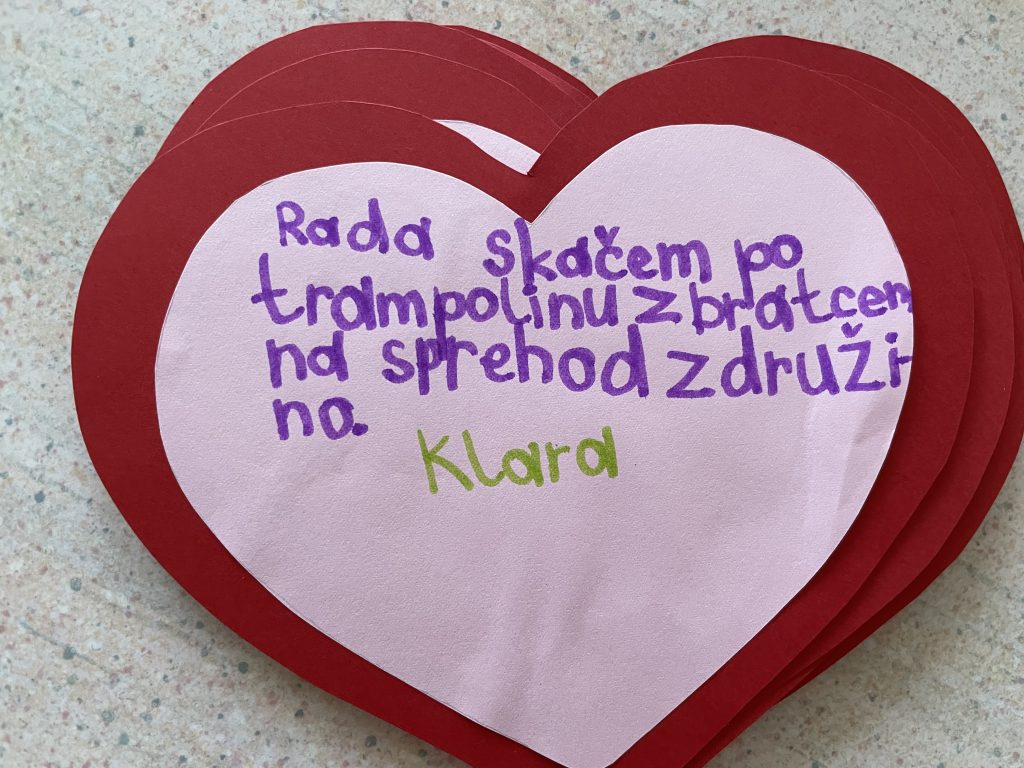 Rada skačem po
trampolinu z bratcem
na sprehod z druži-
no.
Klara